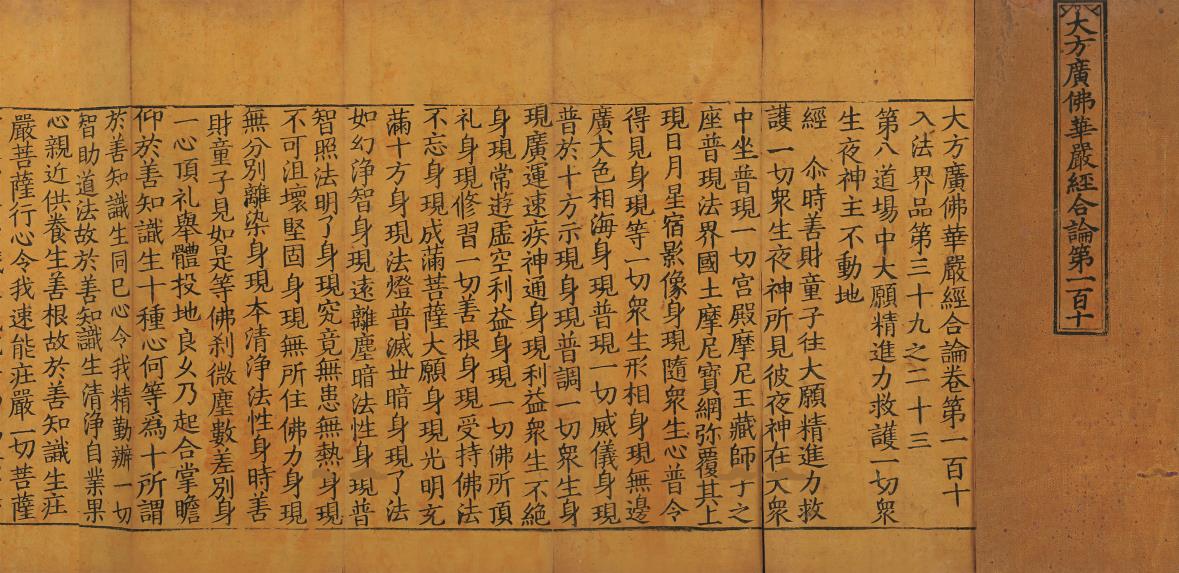 大方廣佛華嚴經合論第一百十
大方廣佛華嚴經合論卷第一百十
入法界品第三十九之二十三
第八道場中大願精進力救護一切衆
生夜神主不動地
經　尒時善財童子往大願精進力救
護一切衆生夜神所見彼夜神在大衆
中坐普現一切宫殿摩尼王藏師子之
座普現法界國土摩尼寶網弥覆其上
現日月星宿影像身現隨衆生心普令
得見身現等一切衆生形相身現無邊
廣大色相海身現普現一切威儀身現
普於十方示現身現普調一切衆生身
現廣運速疾神通身現利益衆生不絶
身現常遊虛空利益身現一切佛所頂
礼身現修習一切善根身現受持佛法
不忘身現成滿菩薩大願身現光明充
滿十方身現法燈普滅世暗身現了法
如幻淨智身現遠離塵暗法性身現普
智照法明了身現究竟無患無熱身現
不可沮壞堅固身現無所住佛力身現
無分別離染身現本清淨法性身時善
財童子見如是等佛刹微塵數差別身
一心頂礼舉體投地良乆乃起合掌瞻
仰於善知識生十種心何等爲十所謂
於善知識生同巳心令我精勤辦一切
智助道法故於善知識生清淨自業果
心親近供養生善根故於善知識生莊
嚴菩薩行心令我速能莊嚴一切菩薩